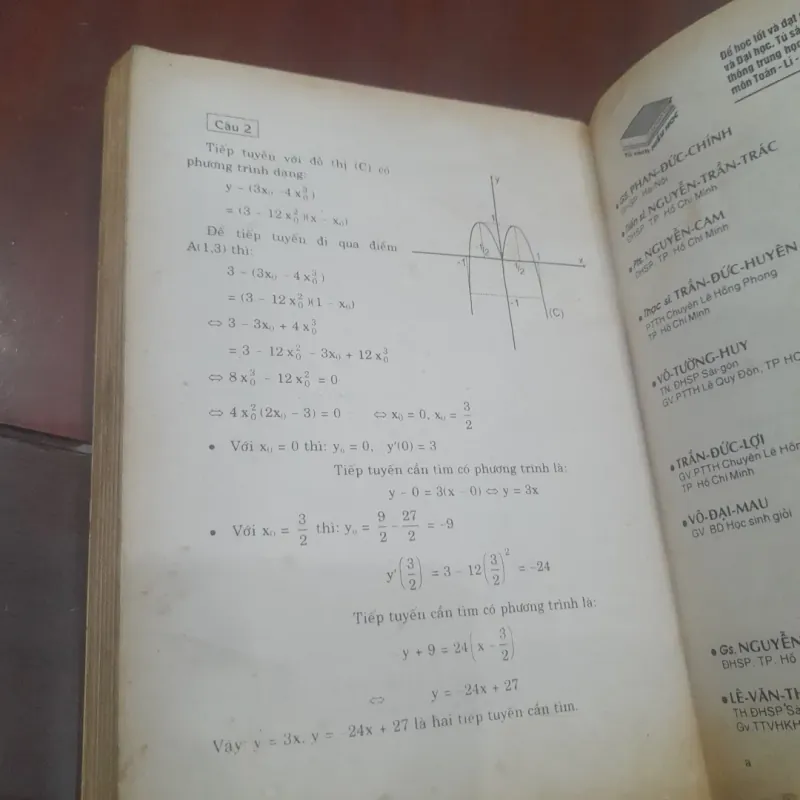 Câu 2
Tiếp tuyến với đồ thị (C) có
phương trình dạng:
y - (3x₀ - 4x₀³)
= (3 - 12x₀²)(x - x₀)
Để tiếp tuyến đi qua điểm
A(1,3) thì:
3 - (3x₀ - 4x₀³)
= (3 - 12x₀²)(1 - x₀)
⇔ 3 - 3x₀ + 4x₀³
= 3 - 12x₀² - 3x₀ + 12x₀³
⇔ 8x₀³ - 12x₀² = 0
⇔ 4x₀²(2x₀ - 3) = 0 ⇔ x₀ = 0, x₀ = 3/2
• Với x₀ = 0 thì: y₀ = 0, y'(0) = 3
Tiếp tuyến cần tìm có phương trình là:
y - 0 = 3(x - 0) ⇔ y = 3x
• Với x₀ = 3/2 thì: y₀ = 9/2 - 27/2 = -9
y'(3/2) = 3 - 12(3/2)² = -24
Tiếp tuyến cần tìm có phương trình là:
y + 9 = 24(x - 3/2)
⇔ y = -24x + 27
Vậy y = 3x, y = -24x + 27 là hai tiếp tuyến cần tìm.
y
1
-1
1
x
-1
(C)
Để học tốt và đạt
và Đại học. Tủ sá
thông trung học
môn Toán - Lí -
• Gs. PHAN-ĐỨC-CHÍNH
ĐHSP. Hà Nội
• Tiến sĩ. NGUYỄN-TRẦN-TRÁC
ĐHSP. TP. Hồ Chí Minh
• Pts. NGUYỄN-CAM
ĐHSP. TP. Hồ Chí Minh
• Thạc sĩ. TRẦN-ĐỨC-HUYÊN
PTTH Chuyên Lê Hồng Phong
TP Hồ Chí Minh
• VÕ-TƯỜNG-HUY
TN. ĐHSP Sài gòn
GV. PTTH Lê Quý Đôn, TP HC
• TRẦN-ĐỨC-LỢI
GV. PTTH Chuyên Lê Hồn
TP Hồ Chí Minh
• VÕ-ĐẠI-MAU
GV. BD Học sinh giỏi
• Gs. NGUYỄN
ĐHSP. TP. Hồ
• LÊ-VĂN-TH
TN.ĐHSP Sà
Gv. TTVHKH
a